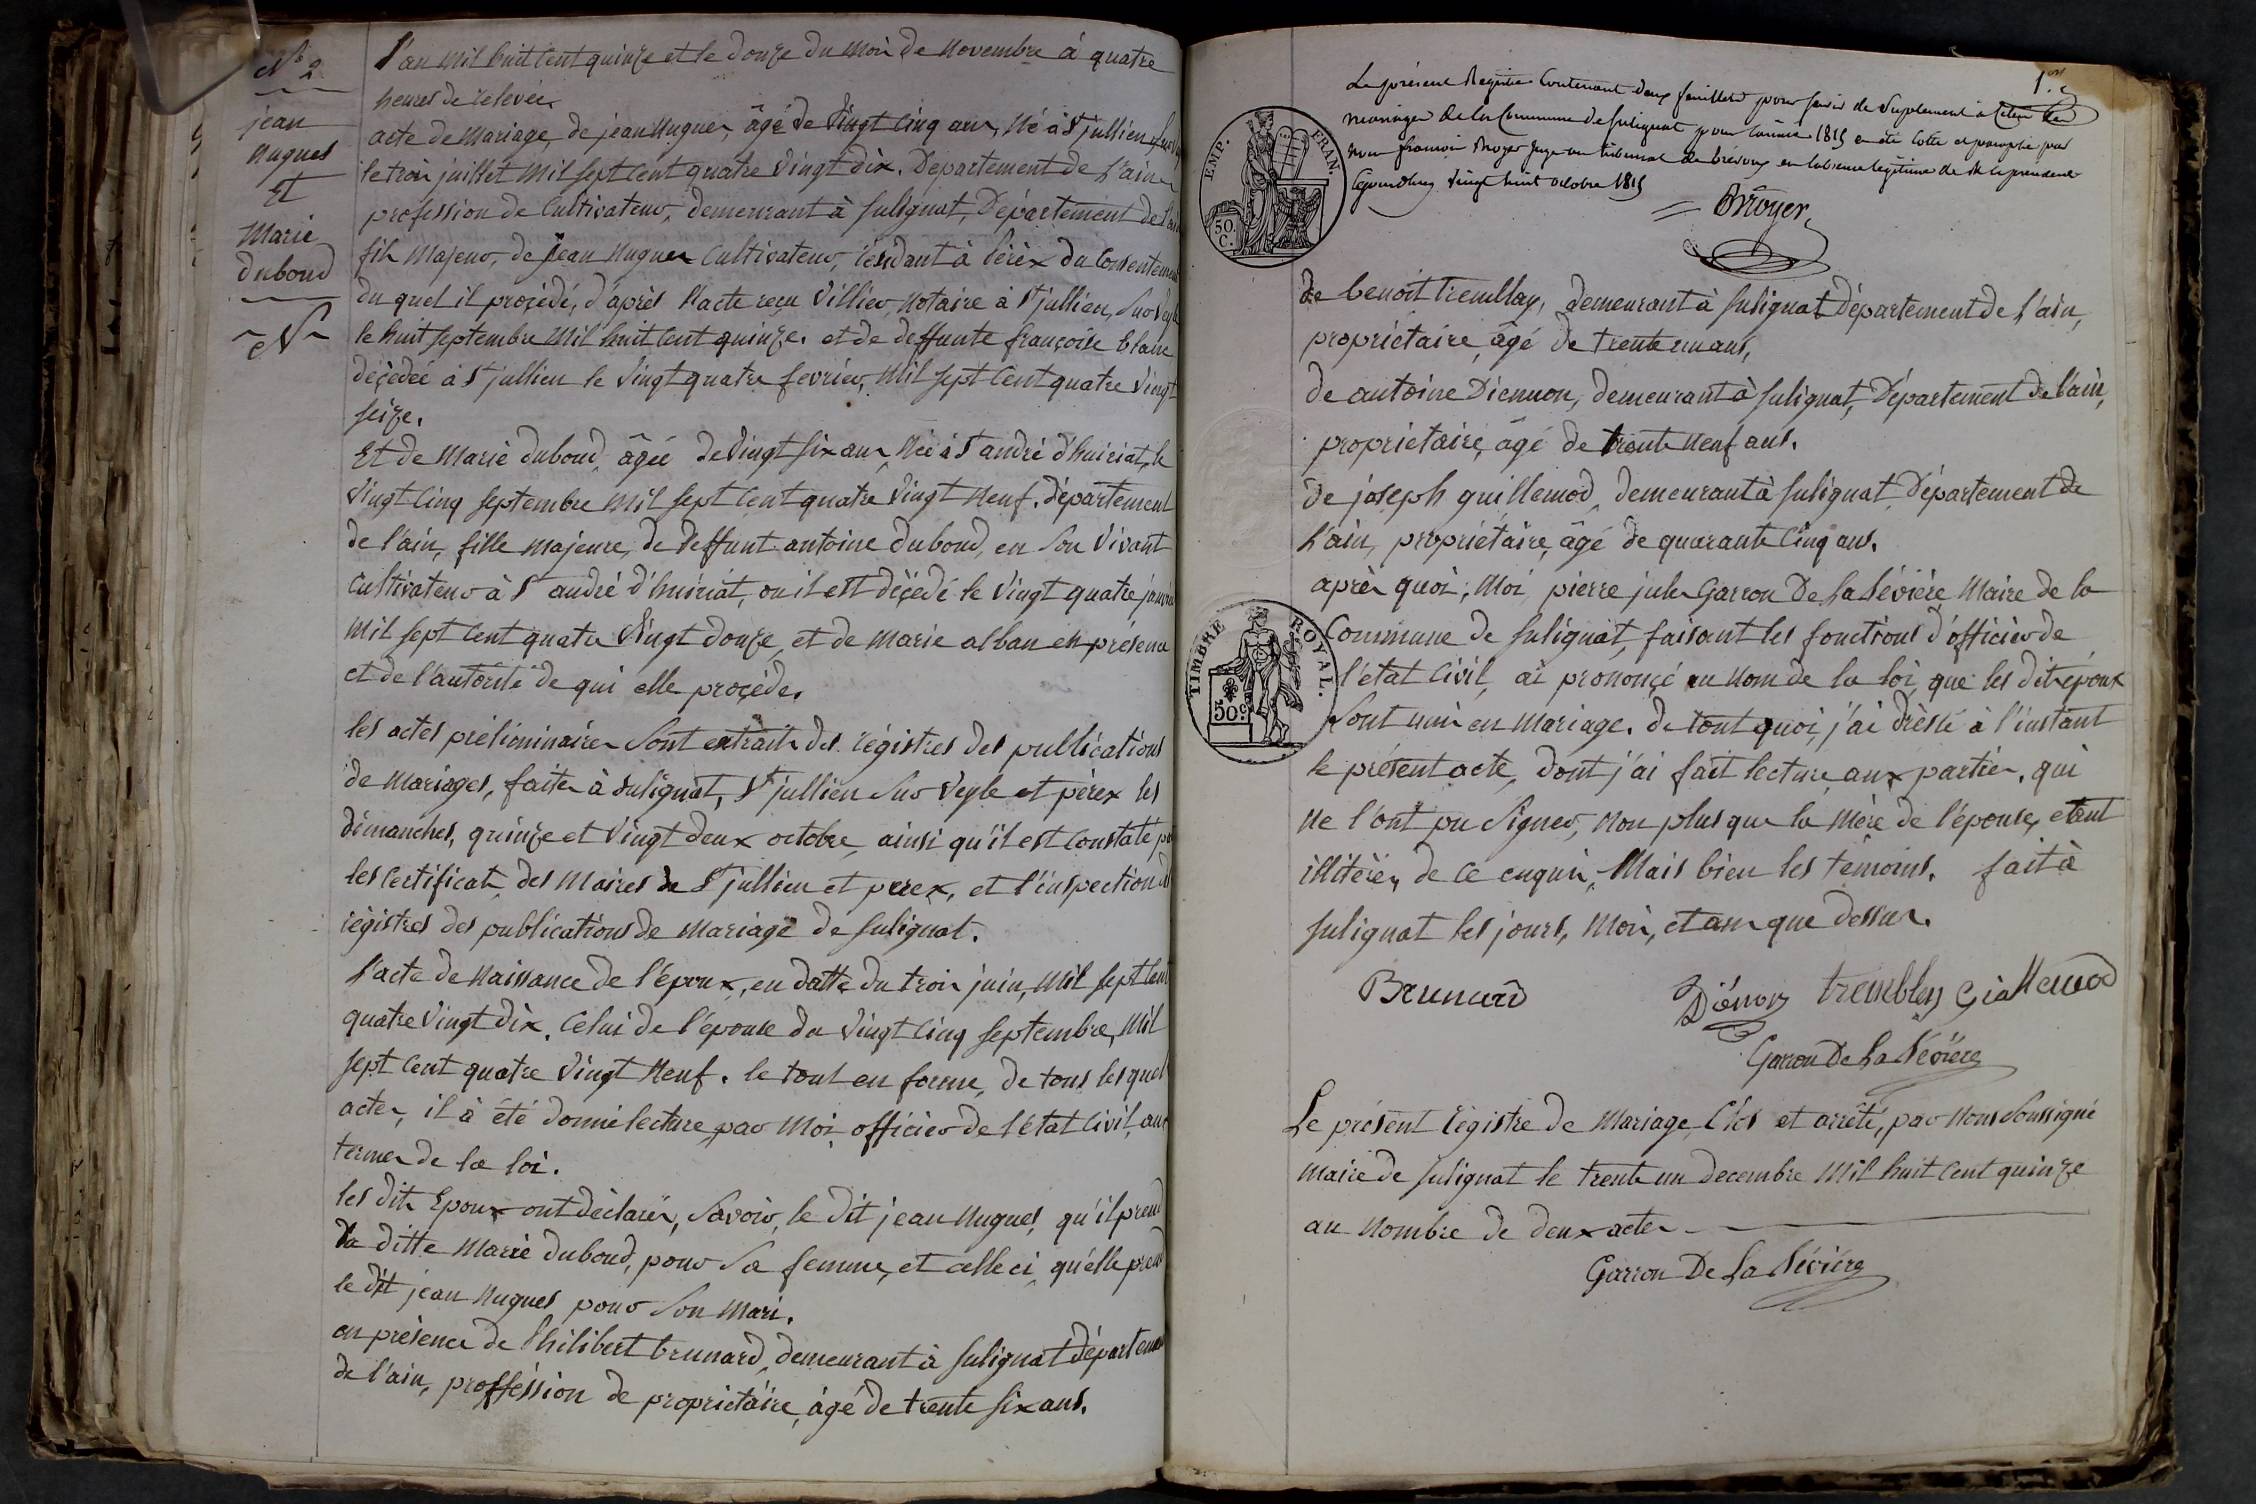 N° 2
jean
hugues
Et
Marie
duboud
L'an mil huit cent quinze et le douze du mois de novembre à quatre
heures de relevée.
acte de mariage, de jean hugues, âgé de vingt cinq ans, né à St jullien sur
le trois juillet mil sept cent quatre vingt dix. Département de l'ain
profession de cultivateur, demeurant à sulignat, Département de l'ain
fils majeur, de jean hugues cultivateur, résidant à pérèx du consentement
du quel il procéde, d'après l'acte reçu villier, notaire à St jullien, sur veyle
le huit septembre mil huit cent quinze. et de deffunte françoise blanc
décédée à St jullien le vingt quatre fevrier, mil sept cent quatre vingt
seize.
Et de marie duboud, âgée de vingt six ans, née à St andré d'huiriat, le
vingt cinq septembre mil sept cent quatre vingt neuf. département
de l'ain, fille majeure, de deffunt antoine duboud, en son vivant
cultivateur à St andré d'huiriat, ou il est décédé le vingt quatre janvier
mil sept cent quatre vingt douze, et de marie alban en présence
et de l'autorité de qui elle procéde.
les actes préliminaires sont extraits des régistres des publications
de mariages, faites à sulignat, St jullien sur veyle et pérex les
dimanches, quinze et vingt deux octobre, ainsi qu'il est constaté par
les certificats des maires de St jullien et perex, et l'inspection des
régistres des publications de mariage de sulignat.
l'acte de naissance de l'époux, en datte du trois juin, mil sept cent
quatre vingt dix. celui de l'épouse du vingt cinq septembre, mil
sept cent quatre vingt neuf. le tout en forme, de tous les quels
actes, il à été donné lecture par moi officier de l'état civil, aux
termes de la loi.
les dits Epoux ont déclarés, savoir, le dit jean hugues, qu'il prend
la ditte marie duboud, pour sa femme, et celle ci, qu'elle prend
le dit jean hugues pour son mari.
en présence de Philibert brunard, demeurant à sulignat département
de l'ain, proffession de propriétaire, âgé de trente six ans.
1.er
Le présent Registre contenant deux feuillets pour servir de suplement à celui des
mariages de la Commune de sulignat pour l'année 1815 a été cotté et paraphé par
nous françois Broyer juge au tribunal de trévoux en l'absence légitime de M. le président
vingt huit octobre 1815
Broyer
EMP. FRAN.
50. C.
de benoit tremblay, demeurant à sulignat département de l'ain,
propriétaire, âgé de trente un ans,
de antoine Diennon, demeurant à sulignat, Département de l'ain,
propriétaire, âgé de trente neuf ans.
de joseph guillemod, demeurant à sulignat, Département de
l'ain, propriétaire, âgé de quarante cinq ans.
après quoi; moi, pierre jules Garron De La Sévière Maire de la
Commune de sulignat, faisant les fonctions d'officier de
l'état civil, ai prononçé au nom de la loi, que les dits époux
sont unis en mariage. de tout quoi, j'ai dréssé à l'instant
le présent acte, dont j'ai fait lecture, aux parties, qui
ne l'ont pu signer, non plus que la mère de l'épouse, étant
illitérés, de ce enquis, mais bien les témoins. fait à
sulignat les jours, mois, et an que dessus.
TIMBRE ROYAL.
50 c.
Brunard
Diénon tremblay Guillemod
Garron De La Sévière
Le présent régistre de mariage, clos et arrêté, par nous soussigné
maire de sulignat le trente un decembre mil huit cent quinze
au nombre de deux actes
Garron De La Sévière